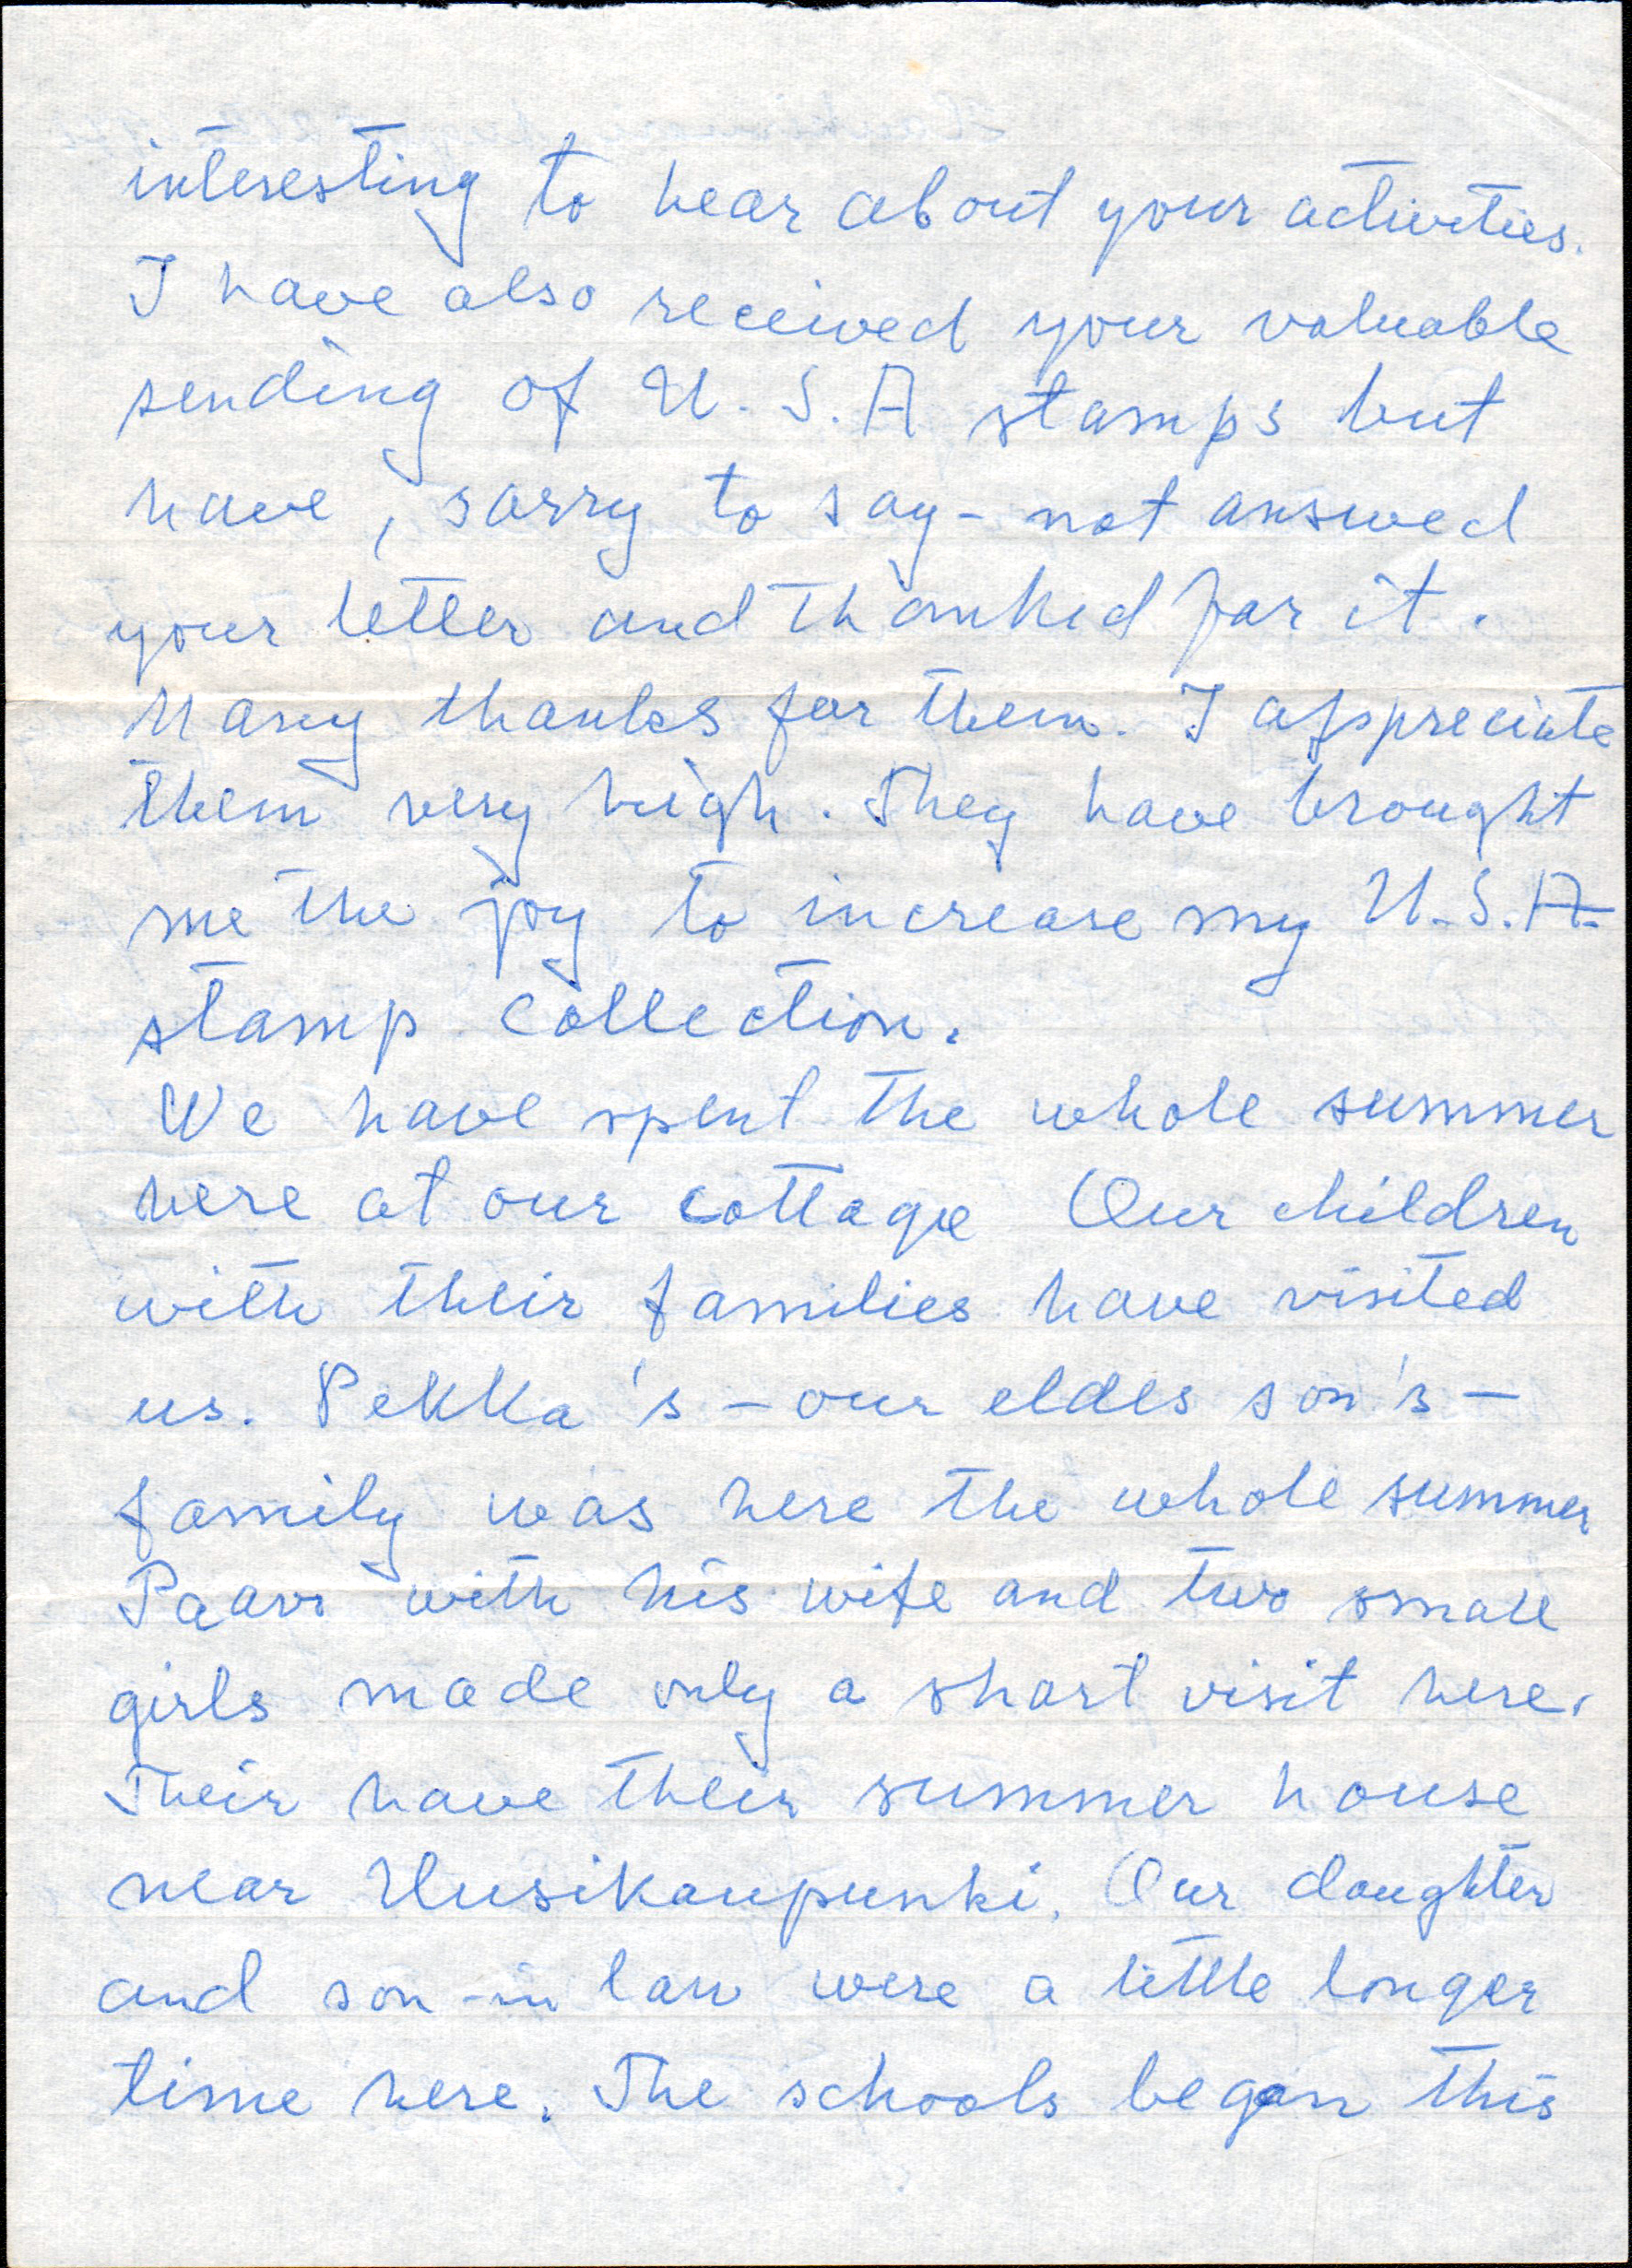 interesting to hear about your activities.
I have also received your valuable
sending of U.S.A stamps but
have, sorry to say - not answed
your letter and thanked for it.
Many thanks for them. I appreciate
them very high. They have brought
me the joy to increase my U.S.A.
stamp collection.
We have spent the whole summer
here at our cottage Our children
with their families have visited
us. Pekka's - our eldes son's -
family was here the whole summer
Paavo with his wife and two small
girls made only a short visit here.
Their have their summer house
near Uusikaupunki. Our daughter
and son-in law were a little longer
time here. The schools began this